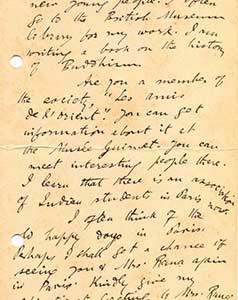 new young people. I often
go to the British Museum
Library for my work. I am
writing a book on the history
of Buddhism.
Are you a member of
the society, "Les amis
de l'Orient". You can get
information about it at
the Musée Guimet. You can
meet interesting people there.
I learn that there is an association
of Indian students in Paris now.
I often think of the
old happy days in Paris.
Perhaps I shall get a chance of
seeing you & Mrs. Rana again
in Paris. Kindly give my
to Mrs. Rana